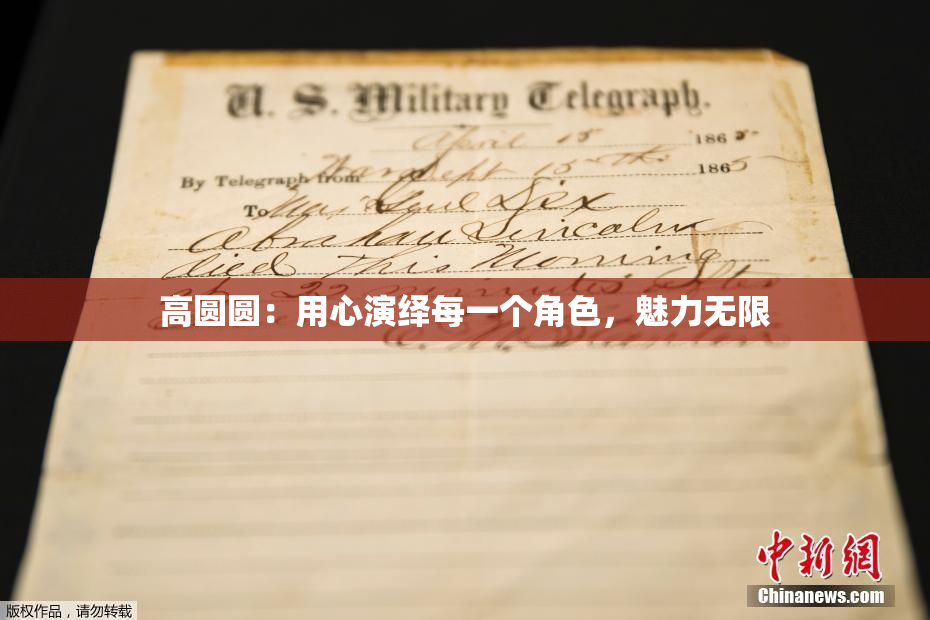 U. S. Military Telegraph.
April 15 1865
By Telegraph from War Dept 15th 1865
To Maj Genl Dix
Abraham Lincoln
died This Morning
at 22 minutes after
高圆圆：用心演绎每一个角色，魅力无限
E. M. Stanton
中新网
Chinanews.com
版权作品，请勿转载